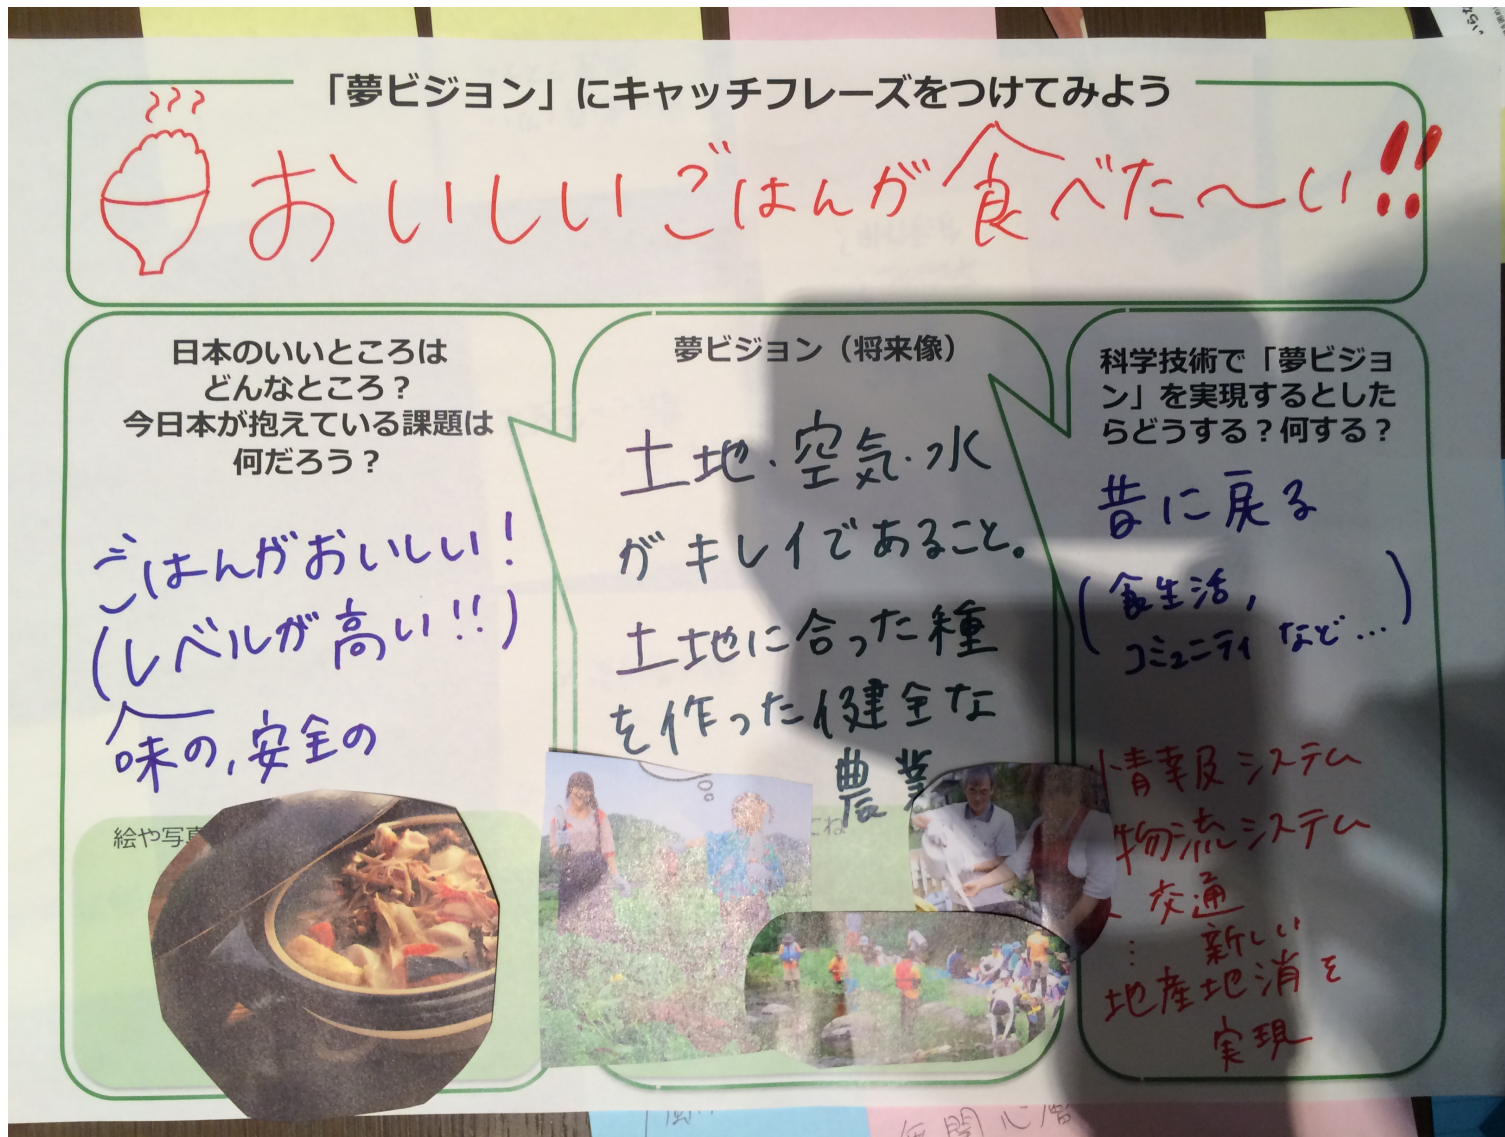 「夢ビジョン」にキャッチフレーズをつけてみよう
おいしいごはんが食べた〜い!!
日本のいいところは
どんなところ？
今日本が抱えている課題は
何だろう？
ごはんがおいしい!
(レベルが高い!!)
味の,安全の
絵や写真
夢ビジョン（将来像）
土地・空気・水
がキレイであること。
土地に合った種
を作った健全な
農業
にね
科学技術で「夢ビジョ
ン」を実現するとした
らどうする？何する？
昔に戻る
(食生活,
コミュニティなど…)
情報システム
物流システム
交通
新しい
地産地消を
実現
無関心層